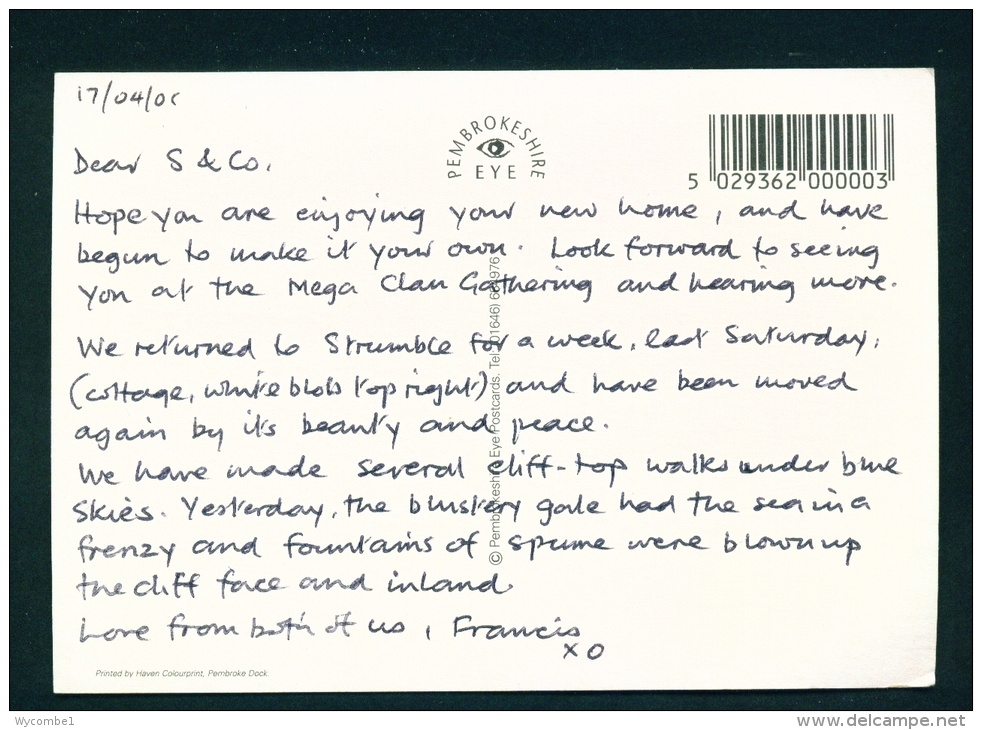 17/04/0
PEMBROKESHIRE
EYE
5 029362 000003
Dear S & Co.
Hope you are enjoying your new home, and have
begun to make it your own. Look forward to seeing
you at the Mega Clan Gathering and hearing more.
We returned to Strumble for a week, last Saturday,
(cottage, white blob top right) and have been moved
again by it's beauty and peace.
We have made several cliff-top walks under blue
skies. Yesterday, the blustery gale had the sea in a
frenzy and fountains of spume were blown up
the cliff face and inland.
Love from both of us, Francis
x o
© Pembrokeshire Eye Postcards. Tel: (01646)
Printed by Haven Colourprint, Pembroke Dock.
Wycombe1
www.delcampe.net